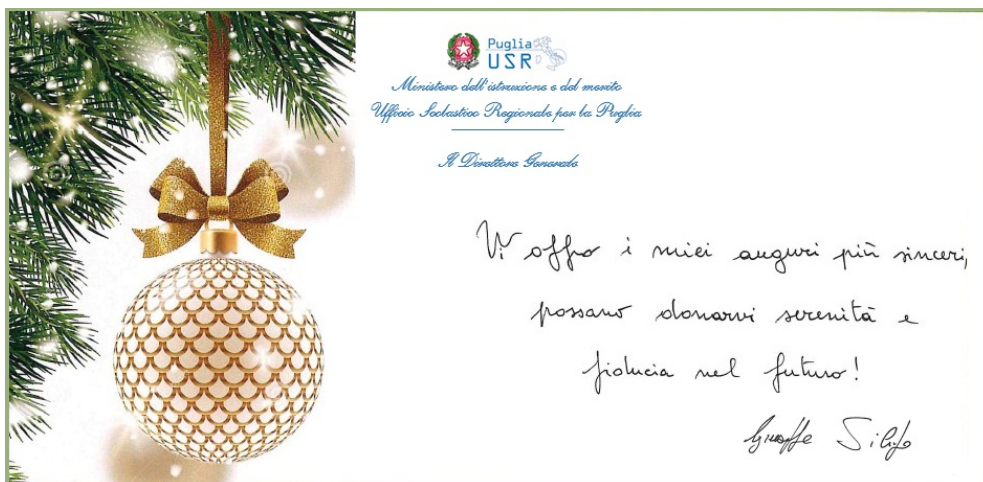 Puglia
USR
Ministero dell'istruzione e del merito
Ufficio Scolastico Regionale per la Puglia
Il Direttore Generale
Vi offro i miei auguri più sinceri,
possano donarvi serenità e
fiducia nel futuro!